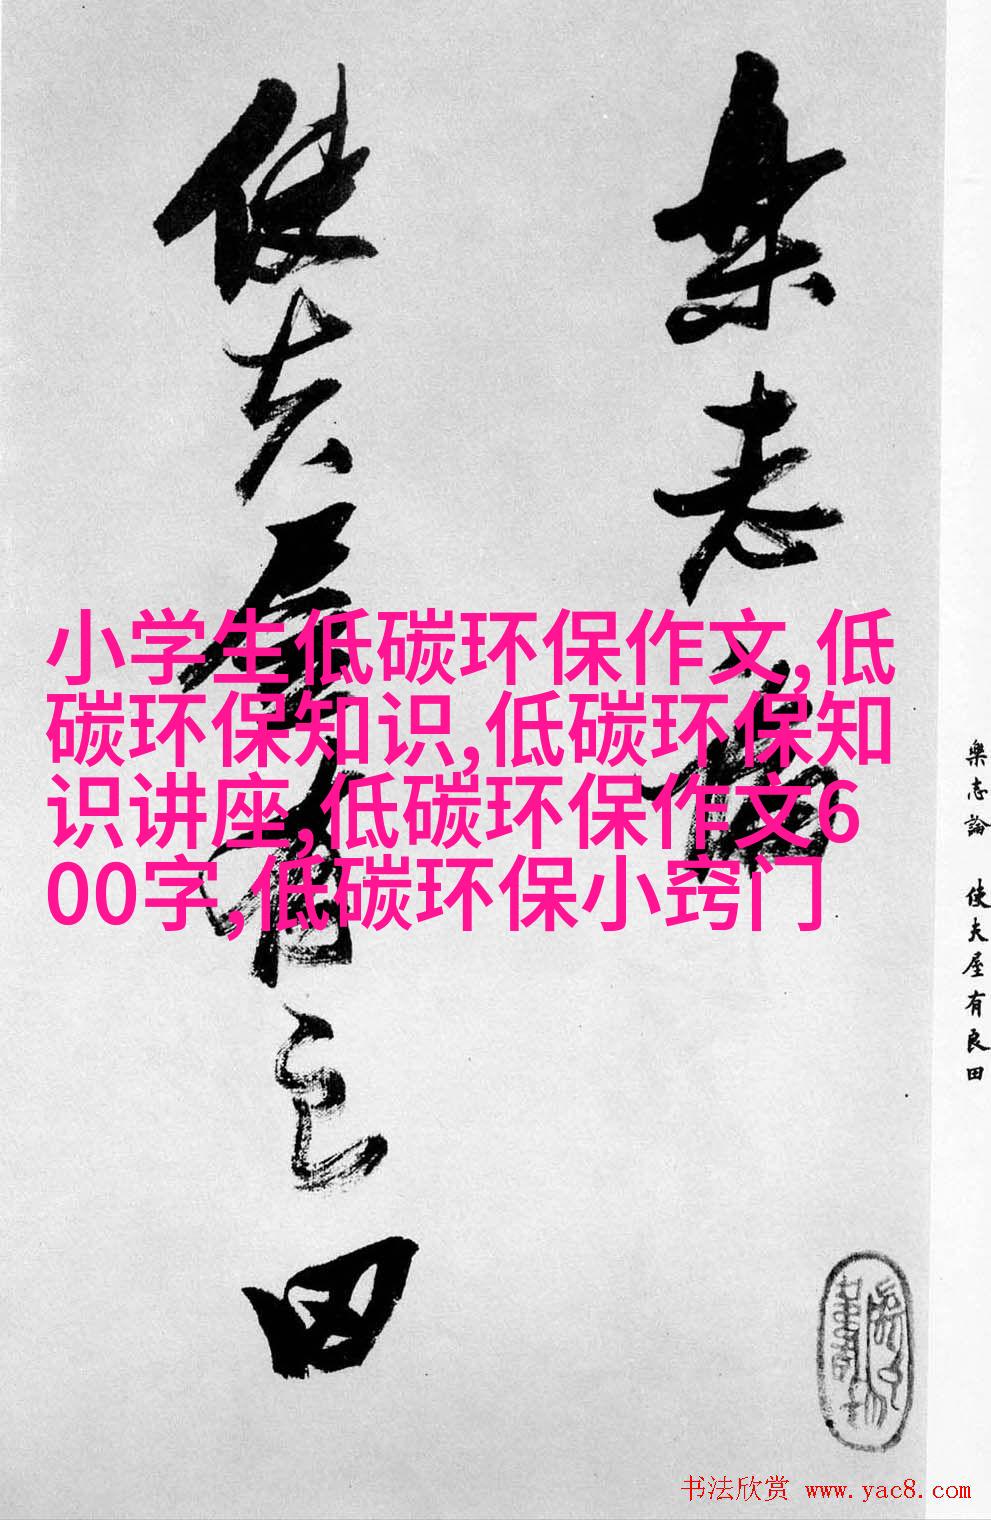 樂志論
使夫屋有良田
小学生低碳环保作文,低
碳环保知识,低碳环保知
识讲座,低碳环保作文6
00字,低碳环保小窍门
樂志論 使夫屋有良田
书法欣赏 www.yac8.com